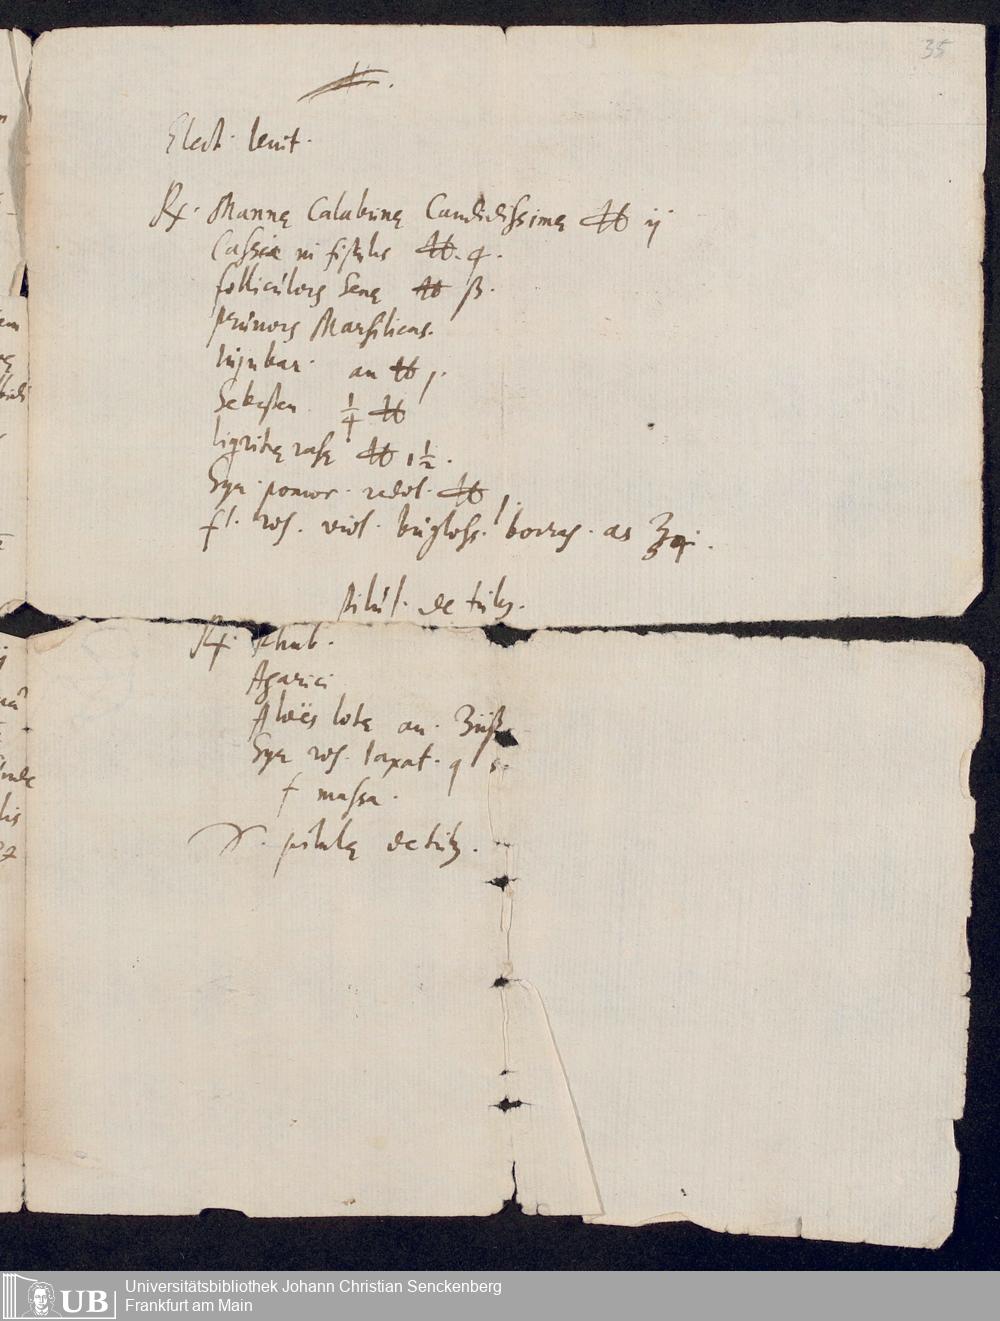 35
Elect. lenit.
℞. Mannę Calabrinę Candidissimę ℔ ij
Cassiæ in fistulis ℔. 4.
folliculorꝫ Senę ℔ ß.
prunorꝫ Marsilicas.
Iujubar. an ℔ j.
Sebesten. ¼ ℔
liqritię rasę ℔ 1½.
Syr. pomor. redol. ℔ j.
fl. ros. viol. bugloss. borrag. as ℥
pilul. de tribꝫ.
℞. Rhab.
Agarici
Aloës lotę an. ℥ijß
Syr ros. laxat. q s.
f massa.
pilulę de trib.
UB Universitätsbibliothek Johann Christian Senckenberg
Frankfurt am Main